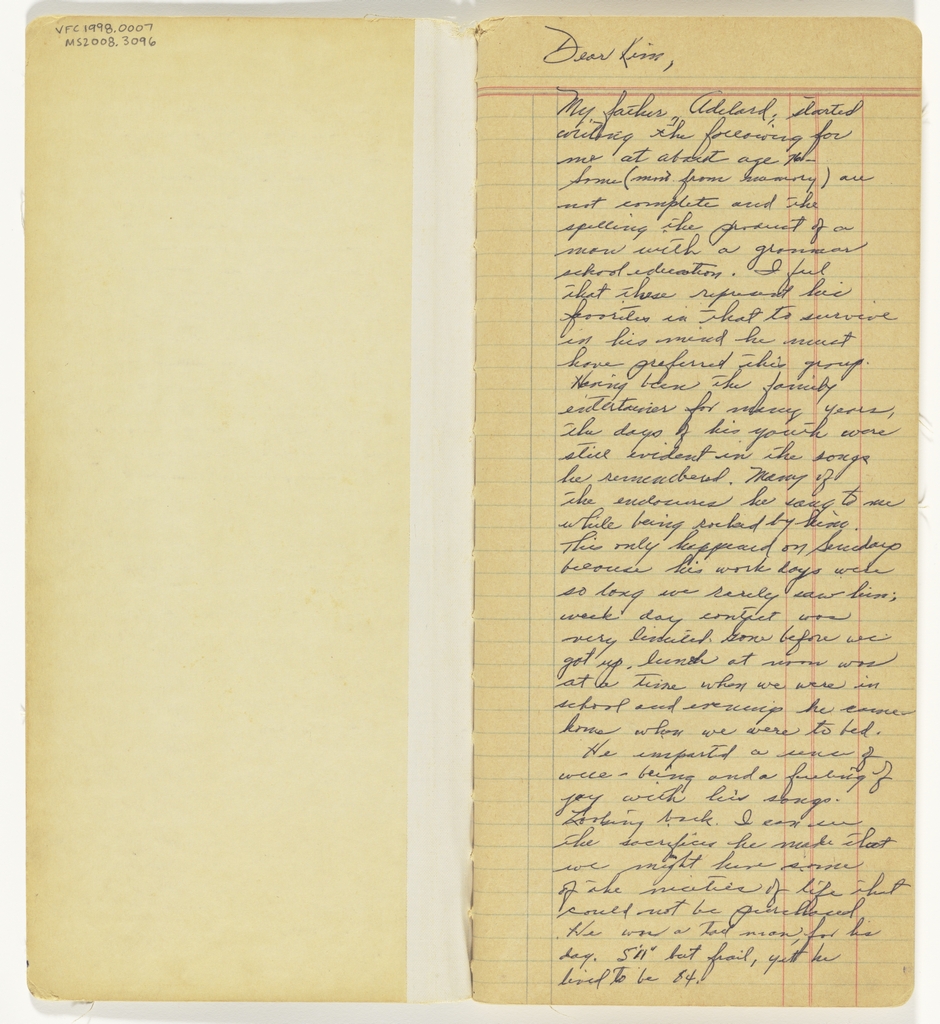 VFC1998.0007
MS2008.3096
Dear Kim,
My father, Adelard, started
writing the following for
me at about age
Some (most from memory) are
not complete and the
spelling the product of a
man with a grammar
school education. I feel
that these represent his
favorites in that to survive
in his mind he must
have preferred this group.
Having been the family
entertainer for many years,
the days of his youth were
still evident in the songs
he remembered. Many of
the enclosures he sang to me
while being rocked by him.
This only happened on Sundays
because his work days were
so long we rarely saw him;
week day contact was
very limited. Gone before we
got up, lunch at noon was
at a time when we were in
school and evenings he came
home when we were to bed.
He imparted a sense of
well-being and a feeling of
joy with his songs.
Looking back, I can see
the sacrifices he made that
we might have some
of the niceties of life that
could not be purchased.
He was a tall man, for his
day. 5'11" but frail, yet he
lived to be 84.